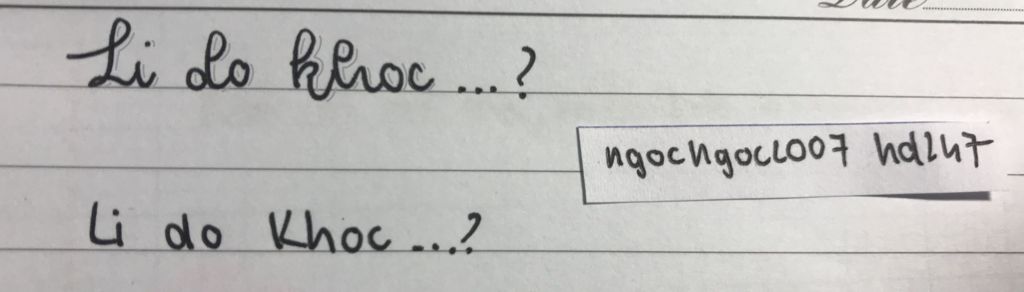 Date
Li do khoc...?
ngocngoc2007 hd247
Li do Khoc...?